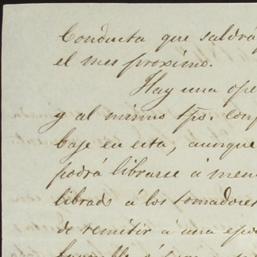 Conducta que saldrá
el mes proximo.
Hay una ope
y al mismo tpo. conf
baje en esta, aunque
podrá librarse á men
librado á los tomadores
de remitir á una epo